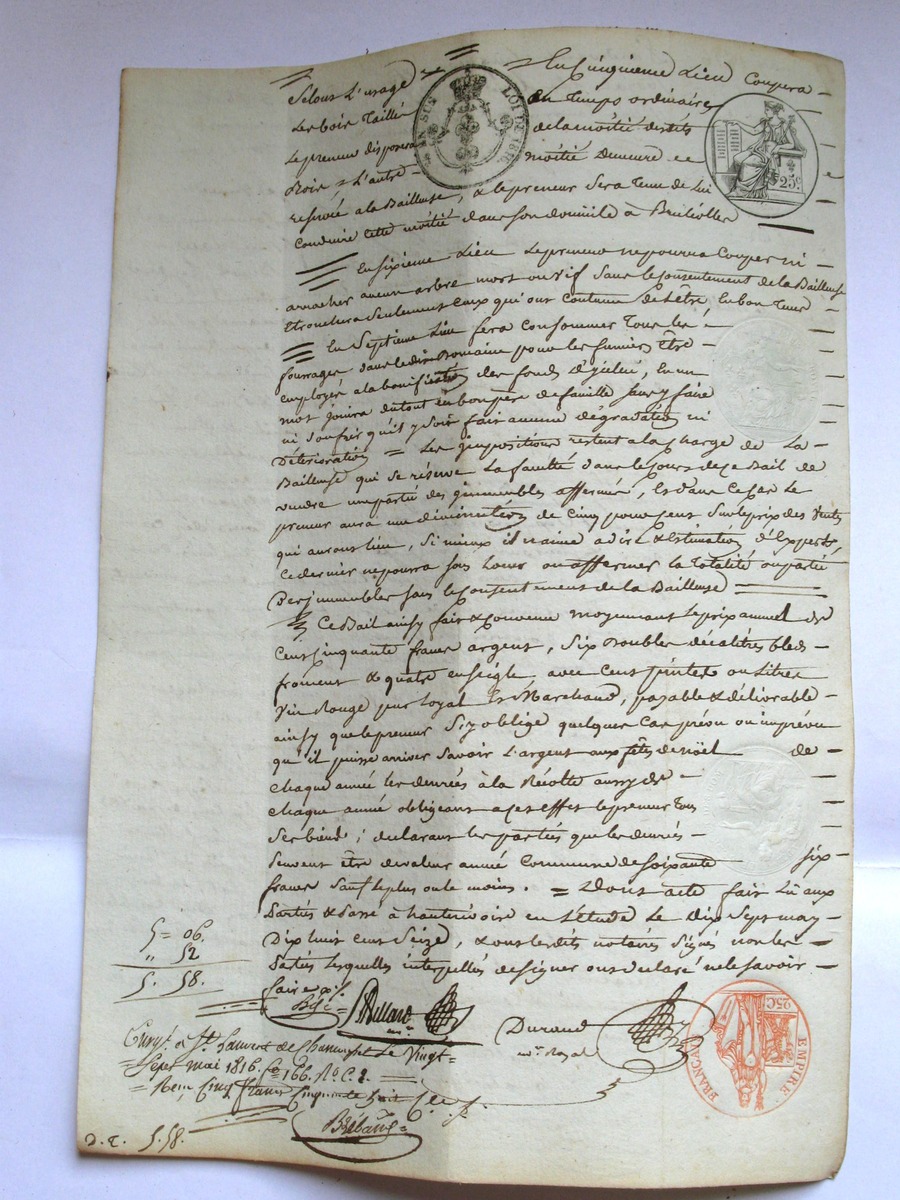 = En Cinquieme Lieu Coupera
Selous L'usage en temps ordinaires
Les bois Taillé de la moitié desdits
Le preneur disposera moitié Demeure ce
Bois & L'autre
EN SUS LOI DE 1816
25c
reservée a la Bailleuse, & le preneur Sera Tenu de lui
Conduire Cette moitié dans son domicile à
En Sixieme Lieu Le preneur ne pourra Couper ni
arracher aucun arbre mort ou vif Sans le Consentement de la Bailleuse
Et tronchera Seulement Ceux qui ont Coutume de L'être En bon Tems
En Septieme Lieu fera Consommer Tous les
fourrages dans ledit Domaine pour les fumiers Être
employés a la bonification des fonds D'yceluy, En un
mot jouira du tout en bon père de famille sans y faire
ni Souffrir qu'il y Soit fait aucune dégradation ni
Détérioration = Les jmpositions restent a la Charge de La
Bailleuse qui se réserve La faculté dans le Cours de Ce Bail de
vendre une partie des jmmeubles affermés, Et dans Ce Cas Le
preneur aura une diminution de Cinq pour Cent Sur le prix des Ventes
qui auront lieu, Si mieux il n'aime a dire & Estimation d'Experts,
Ce dernier ne pourra Sous Louer ou affermer la Totalité ou partie
Des jmmeubles Sans le Consentement de la Bailleuse
Ce Bail ainsy fait & Convenu moyennant Le prix annuel de
Cent Cinquante francs argent, Six Doubles décalitres bled
froment & quatre en Seigle, avec Cent pintes ou Litres
Vin Rouge pur Loyal Et Marchand, payable & délivrable
ainsy que le preneur S'y oblige quelques Cas prévu ou imprévu
qu'il puisse arriver Savoir L'argent aux fêtes de Noël de
Chaque année les denrées à la Récolte aussy de
Chaque année obligeant a Cet effet le preneur Tous
Ses biens; declarant les parties que les denrées
peuvent être de valeur année Commune de Soixante Six
francs Sauf Le plus ou le moins. = Dont acte fait Lû aux
Parties & Passé à hauterivoire en L'étude Le Dix Sept may
Dix huit Cent Seize, & ont lesdits notaires Signés non les
Parties Lesquelles interpellés de Signer ont déclaré ne le Savoir
faire
5 = 06.
" 52
5. 58.
Durand
nre Royal
EMPIRE FRANÇAIS
25C
Enregé a St. Laurent de Chamousset Le Vingt
Sept mai 1816. fo 166. Ro C. 2.
Reçu Cinq francs Cinquante huit Cmes
D. E. 5.58.